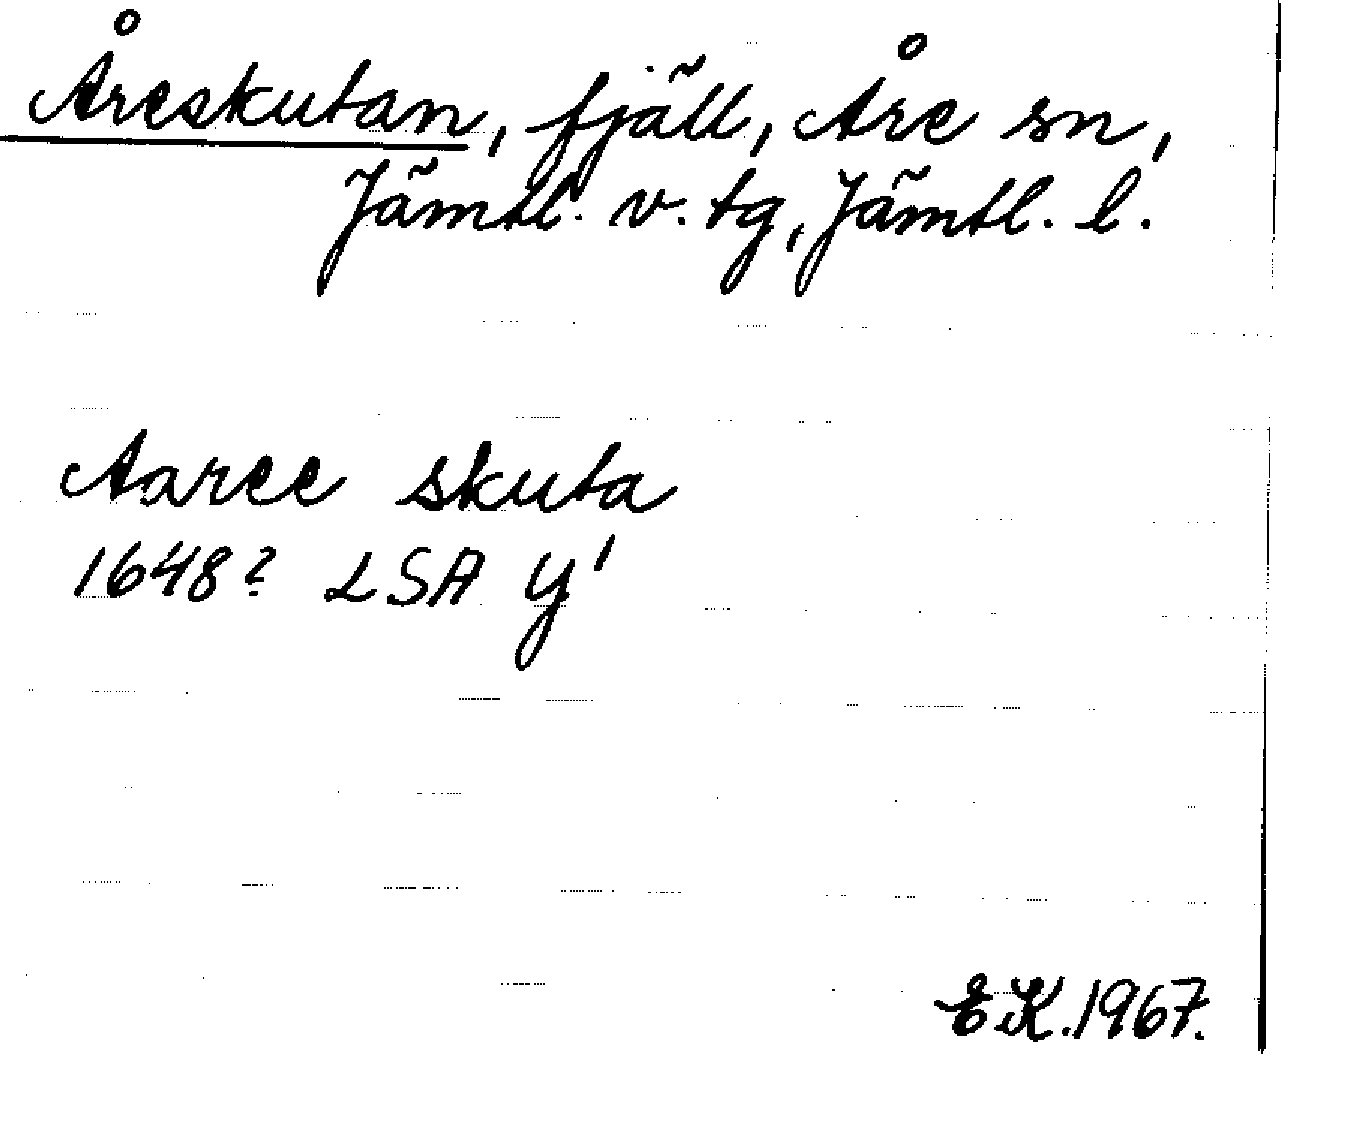 Åreskutan, fjäll, Åre sn,
Jämtl. v. tg, Jämtl. l.
Aaree skuta
1648? LSA Y'
E.K. 1967.